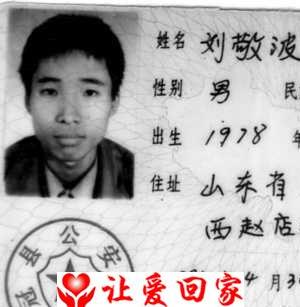 姓名 刘敬波
性别 男 民
出生 1978 年
住址 山东省
西赵店
县公安
4 月3
让爱回家